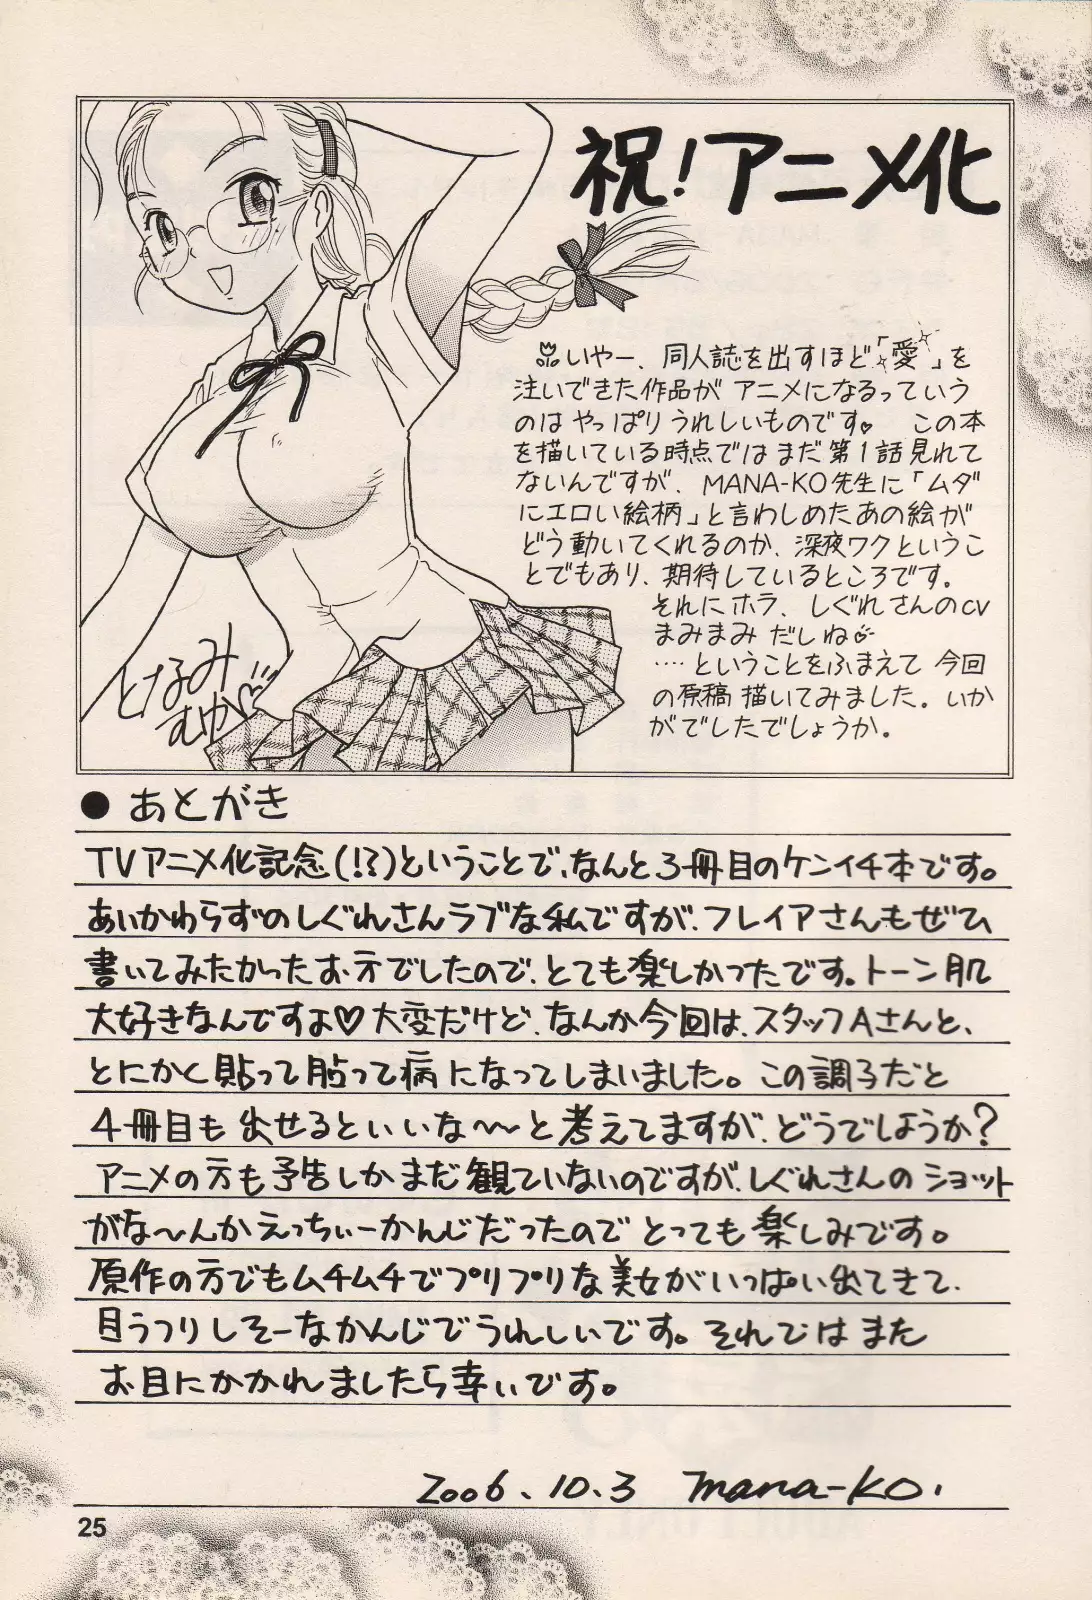 祝!アニメ化
いやー、同人誌を出すほど「愛」を
注いできた作品がアニメになるっていう
のはやっぱりうれしいものです♡ この本
を描いている時点ではまだ第1話見れて
ないんですが、MANA-KO先生に「ムダ
にエロい絵柄」と言わしめたあの絵が
どう動いてくれるのか、深夜ワクというこ
とでもあり、期待しているところです。
それにホラ、しぐれさんのCV
まみまみだしね♡
‥‥ということをふまえて今回
の原稿描いてみました。いか
がでしたでしょうか。
となみ
むか
●あとがき
TVアニメ化記念(!?)ということで、なんと3冊目のケンイチ本です。
あいかわらずのしぐれさんラブな私ですが、フレイアさんもぜひ
書いてみたかったお方でしたので、とても楽しかったです。トーン肌
大好きなんですよ♡大変だけど、なんか今回は、スタッフAさんと、
とにかく貼って貼って病になってしまいました。この調子だと
4冊目も出せるといいな〜〜と考えてますが、どうでしょうか?
アニメの方も予告しかまだ観ていないのですが、しぐれさんのショット
がな〜んかえっちぃーかんじだったのでとっても楽しみです。
原作の方でもムチムチでプリプリな美女がいっぱい出てきて、
目うつりしそーなかんじでうれしいです。それではまた
お目にかかれましたら幸いです。
2006.10.3 mana-ko.
25